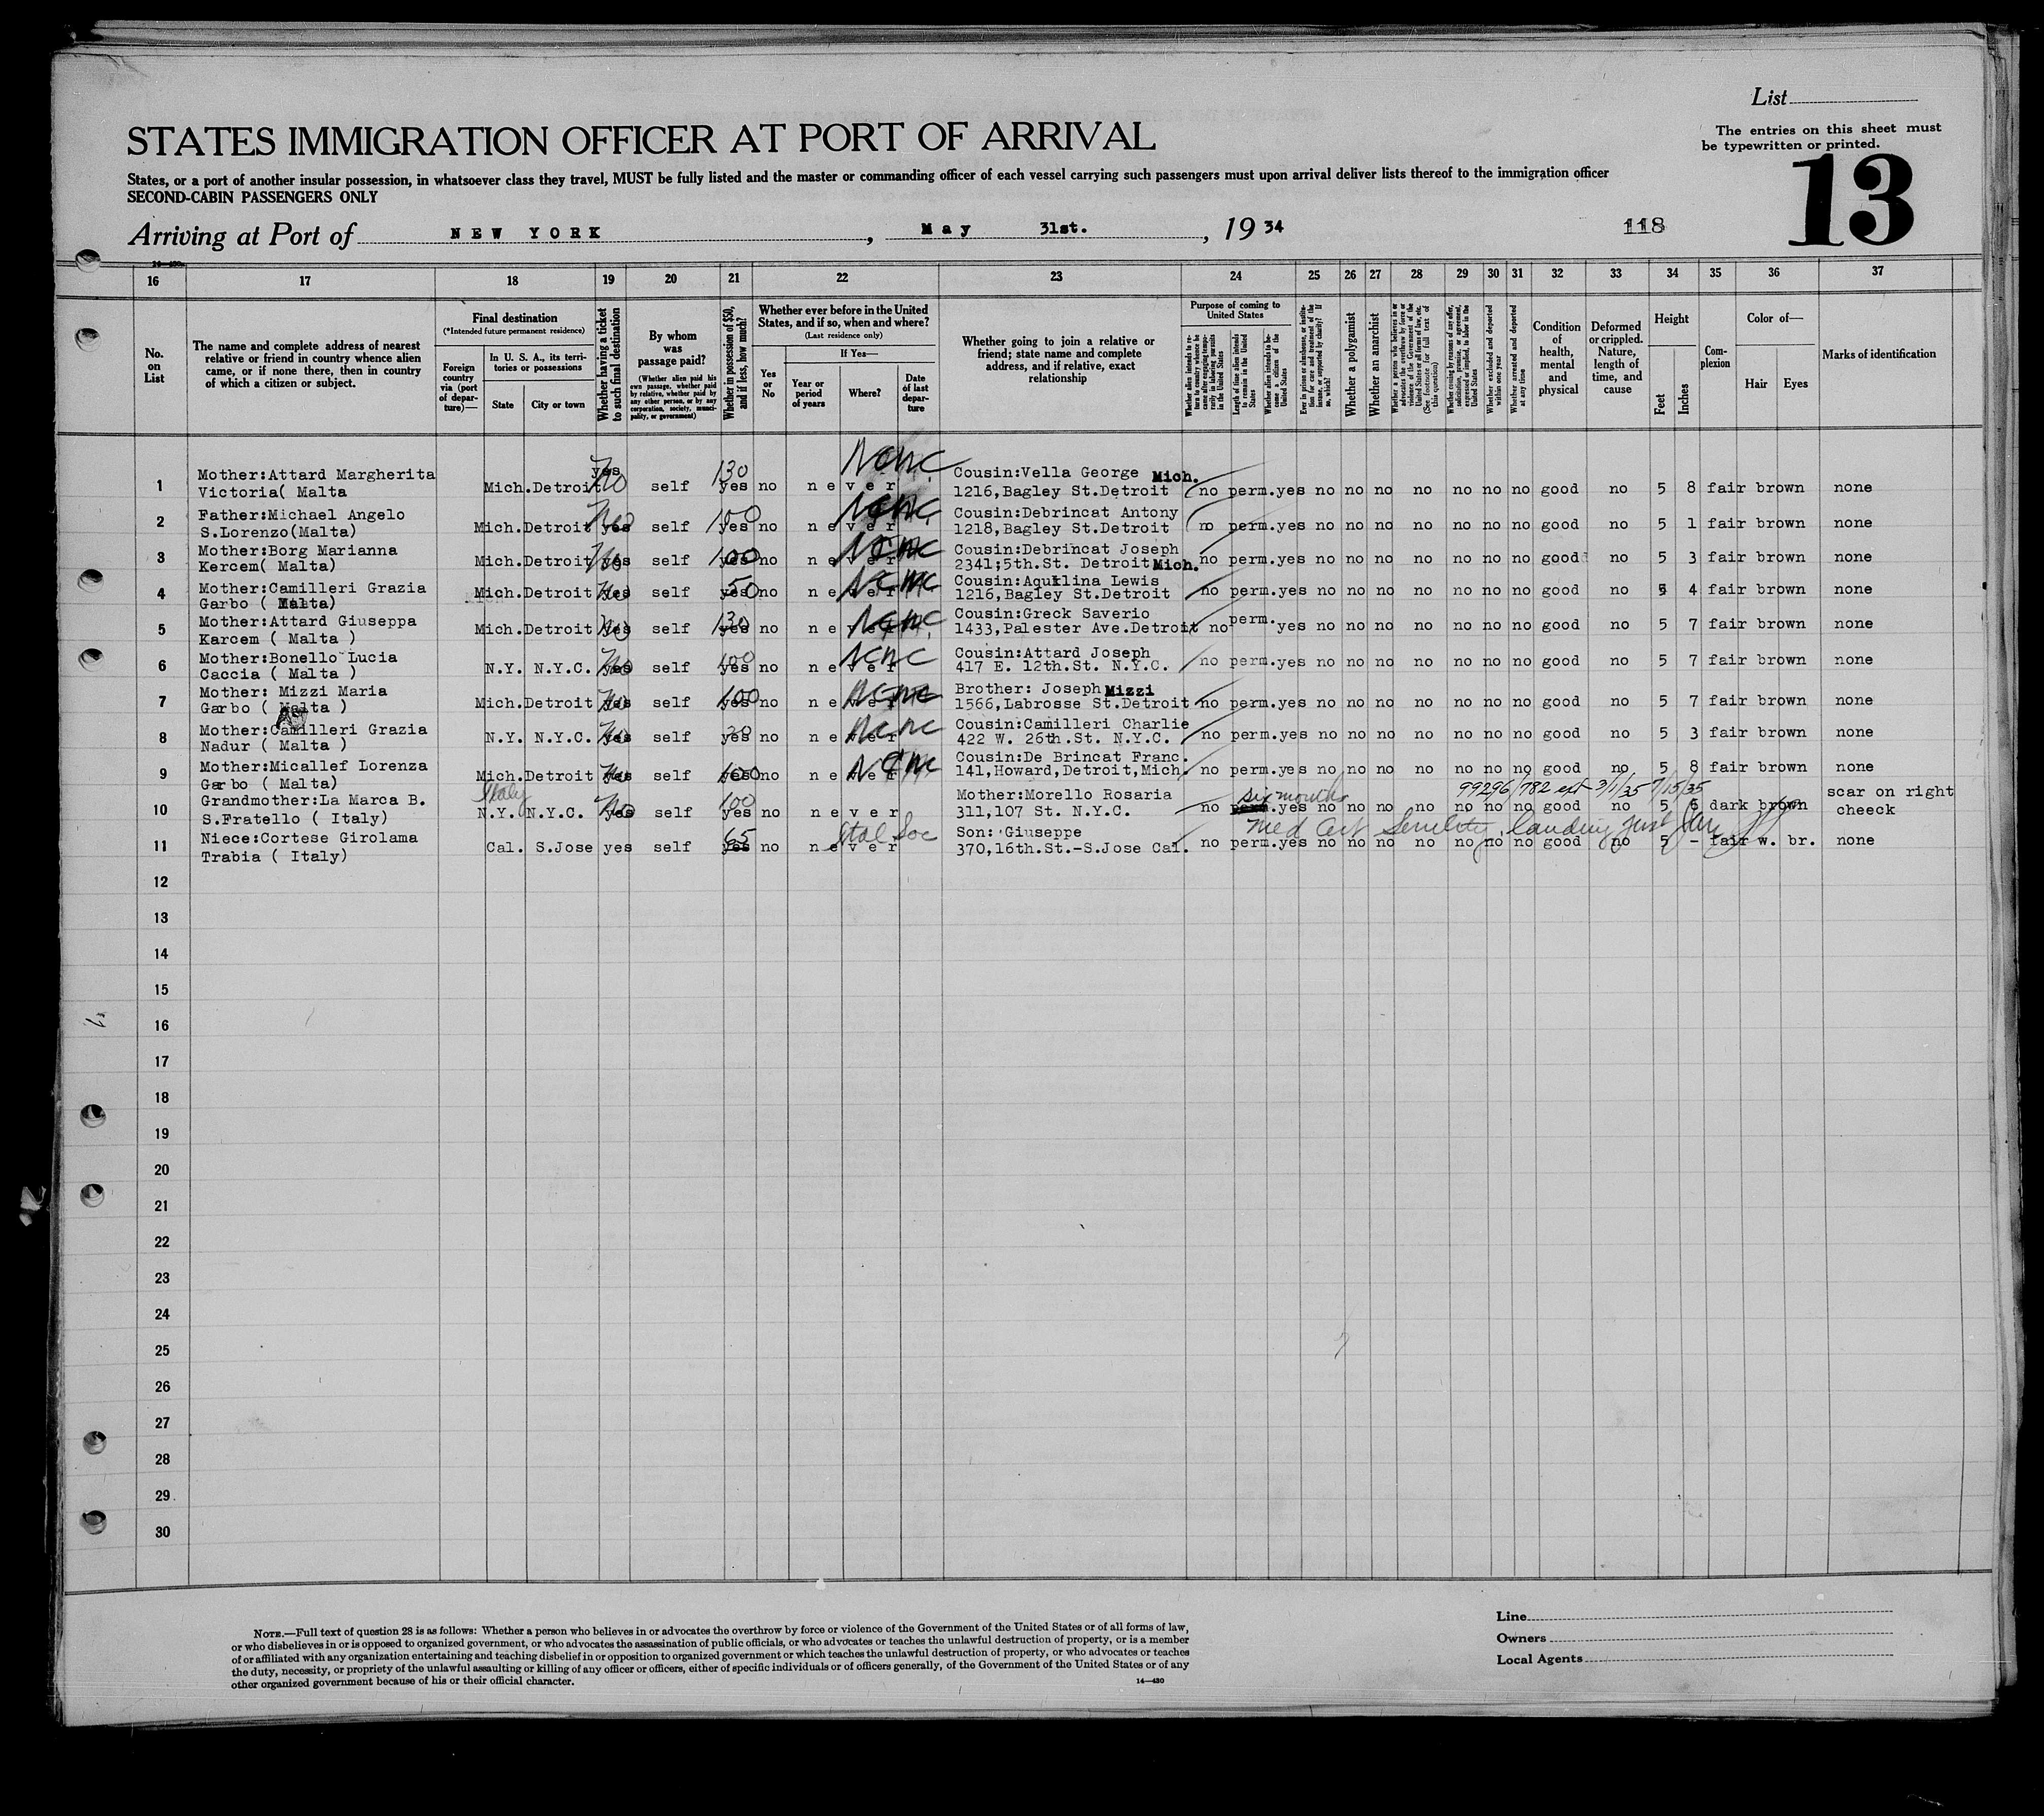 List
The entries on this sheet must
be typewritten or printed.
STATES IMMIGRATION OFFICER AT PORT OF ARRIVAL
13
States, or a port of another insular possession, in whatsoever class they travel, MUST be fully listed and the master or commanding officer of each vessel carrying such passengers must upon arrival deliver lists thereof to the immigration officer
SECOND-CABIN PASSENGERS ONLY
Arriving at Port of NEW YORK, May 31st., 1934 118
16 17 18 19 20 21 22 23 24 25 26 27 28 29 30 31 32 33 34 35 36 37
No. on List
The name and complete address of nearest
relative or friend in country whence alien
came, or if none there, then in country
of which a citizen or subject.
Final destination
(*Intended future permanent residence)
Foreign country via (port of departure)—
In U. S. A., its territories or possessions
State City or town
Whether having a ticket to such final destination
By whom was passage paid?
(Whether alien paid his own passage, whether paid by relative, whether paid by any other person, or by any corporation, society, municipality, or government)
Whether in possession of $50, and if less, how much?
Whether ever before in the United States, and if so, when and where?
(Last residence only)
Yes or No
If Yes—
Year or period of years
Where?
Date of last departure
Whether going to join a relative or
friend; state name and complete
address, and if relative, exact
relationship
Purpose of coming to United States
Whether alien intends to return to country whence he came after engaging temporarily in laboring pursuits in the United States
Length of time alien intends to remain in the United States
Whether alien intends to become a citizen of the United States
Ever in prison or almshouse, or institution for care and treatment of the insane, or supported by charity? If so, which?
Whether a polygamist
Whether an anarchist
Whether a person who believes in or advocates the overthrow by force or violence of the Government of the United States or all forms of law, etc. (See footnote for full text of this question)
Whether coming by reasons of any offer, solicitation, promise, or agreement, expressed or implied, to labor in the United States
Whether excluded and deported within one year
Whether arrested and deported at any time
Condition of health, mental and physical
Deformed or crippled. Nature, length of time, and cause
Height
Feet Inches
Complexion
Color of—
Hair Eyes
Marks of identification
1 Mother:Attard Margherita yes No 130 Cousin:Vella George Mich.
Victoria( Malta Mich.Detroit self yes no never 1216,Bagley St.Detroit no perm.yes no no no no no no no good no 5 8 fair brown none
2 Father:Michael Angelo Cousin:Debrincat Antony
S.Lorenzo(Malta) Mich.Detroit No yes self 150 yes no never 1218,Bagley St.Detroit no perm.yes no no no no no no no good no 5 1 fair brown none
3 Mother:Borg Marianna Cousin:Debrincat Joseph
Kercem( Malta) Mich.Detroit No yes self 100 yes no never 2341;5th.St. Detroit Mich. no perm.yes no no no no no no no good no 5 3 fair brown none
4 Mother:Camilleri Grazia Cousin:Aquilina Lewis
Garbo ( Malta) Mich.Detroit No yes self 50 yes no never 1216,Bagley St.Detroit no perm.yes no no no no no no no good no 5 4 fair brown none
5 Mother:Attard Giuseppa Cousin:Greck Saverio
Karcem ( Malta ) Mich.Detroit No yes self 130 yes no never 1433,Palester Ave.Detroit no perm. yes no no no no no no no good no 5 7 fair brown none
6 Mother:Bonello Lucia Cousin:Attard Joseph
Caccia ( Malta ) N.Y. N.Y.C. No yes self 100 yes no never 417 E. 12th.St. N.Y.C. no perm.yes no no no no no no no good no 5 7 fair brown none
7 Mother: Mizzi Maria Brother: Joseph Mizzi
Garbo ( Malta ) Mich.Detroit No yes self 100 yes no never 1566,Labrosse St.Detroit no perm.yes no no no no no no no good no 5 7 fair brown none
8 Mother:Camilleri Grazia Cousin:Camilleri Charlie
Nadur ( Malta ) N.Y. N.Y.C. No yes self yes no never 422 W. 26th.St. N.Y.C. no perm.yes no no no no no no no good no 5 3 fair brown none
9 Mother:Micallef Lorenza Cousin:De Brincat Franc.
Garbo ( Malta) Mich.Detroit No yes self 100 yes no never 141,Howard,Detroit,Mich. no perm.yes no no no no no no no good no 5 8 fair brown none
10 Grandmother:La Marca B. Italy Mother:Morello Rosaria six months 99296/782 ext 3/1/35 7/15/35 scar on right
S.Fratello ( Italy) N.Y. N.Y.C. No yes self 100 yes no never 311,107 St. N.Y.C. no perm.yes no no no no no no no good no 5 6 dark brown cheeck
11 Niece:Cortese Girolama 65 Ital Soc Son: Giuseppe Med Cert Senility, landing
Trabia ( Italy) Cal. S.Jose yes self yes no never 370,16th.St.-S.Jose Cal. no perm.yes no no no no no no no good no 5 - fair w. br. none
12
13
14
15
16
17
18
19
20
21
22
23
24
25
26
27
28
29
30
NOTE.—Full text of question 28 is as follows: Whether a person who believes in or advocates the overthrow by force or violence of the Government of the United States or of all forms of law,
or who disbelieves in or is opposed to organized government, or who advocates the assassination of public officials, or who advocates or teaches the unlawful destruction of property, or is a member
of or affiliated with any organization entertaining and teaching disbelief in or opposition to organized government or which teaches the unlawful destruction of property, or who advocates or teaches
the duty, necessity, or propriety of the unlawful assaulting or killing of any officer or officers, either of specific individuals or of officers generally, of the Government of the United States or of any
other organized government because of his or their official character.
14—430
Line
Owners
Local Agents